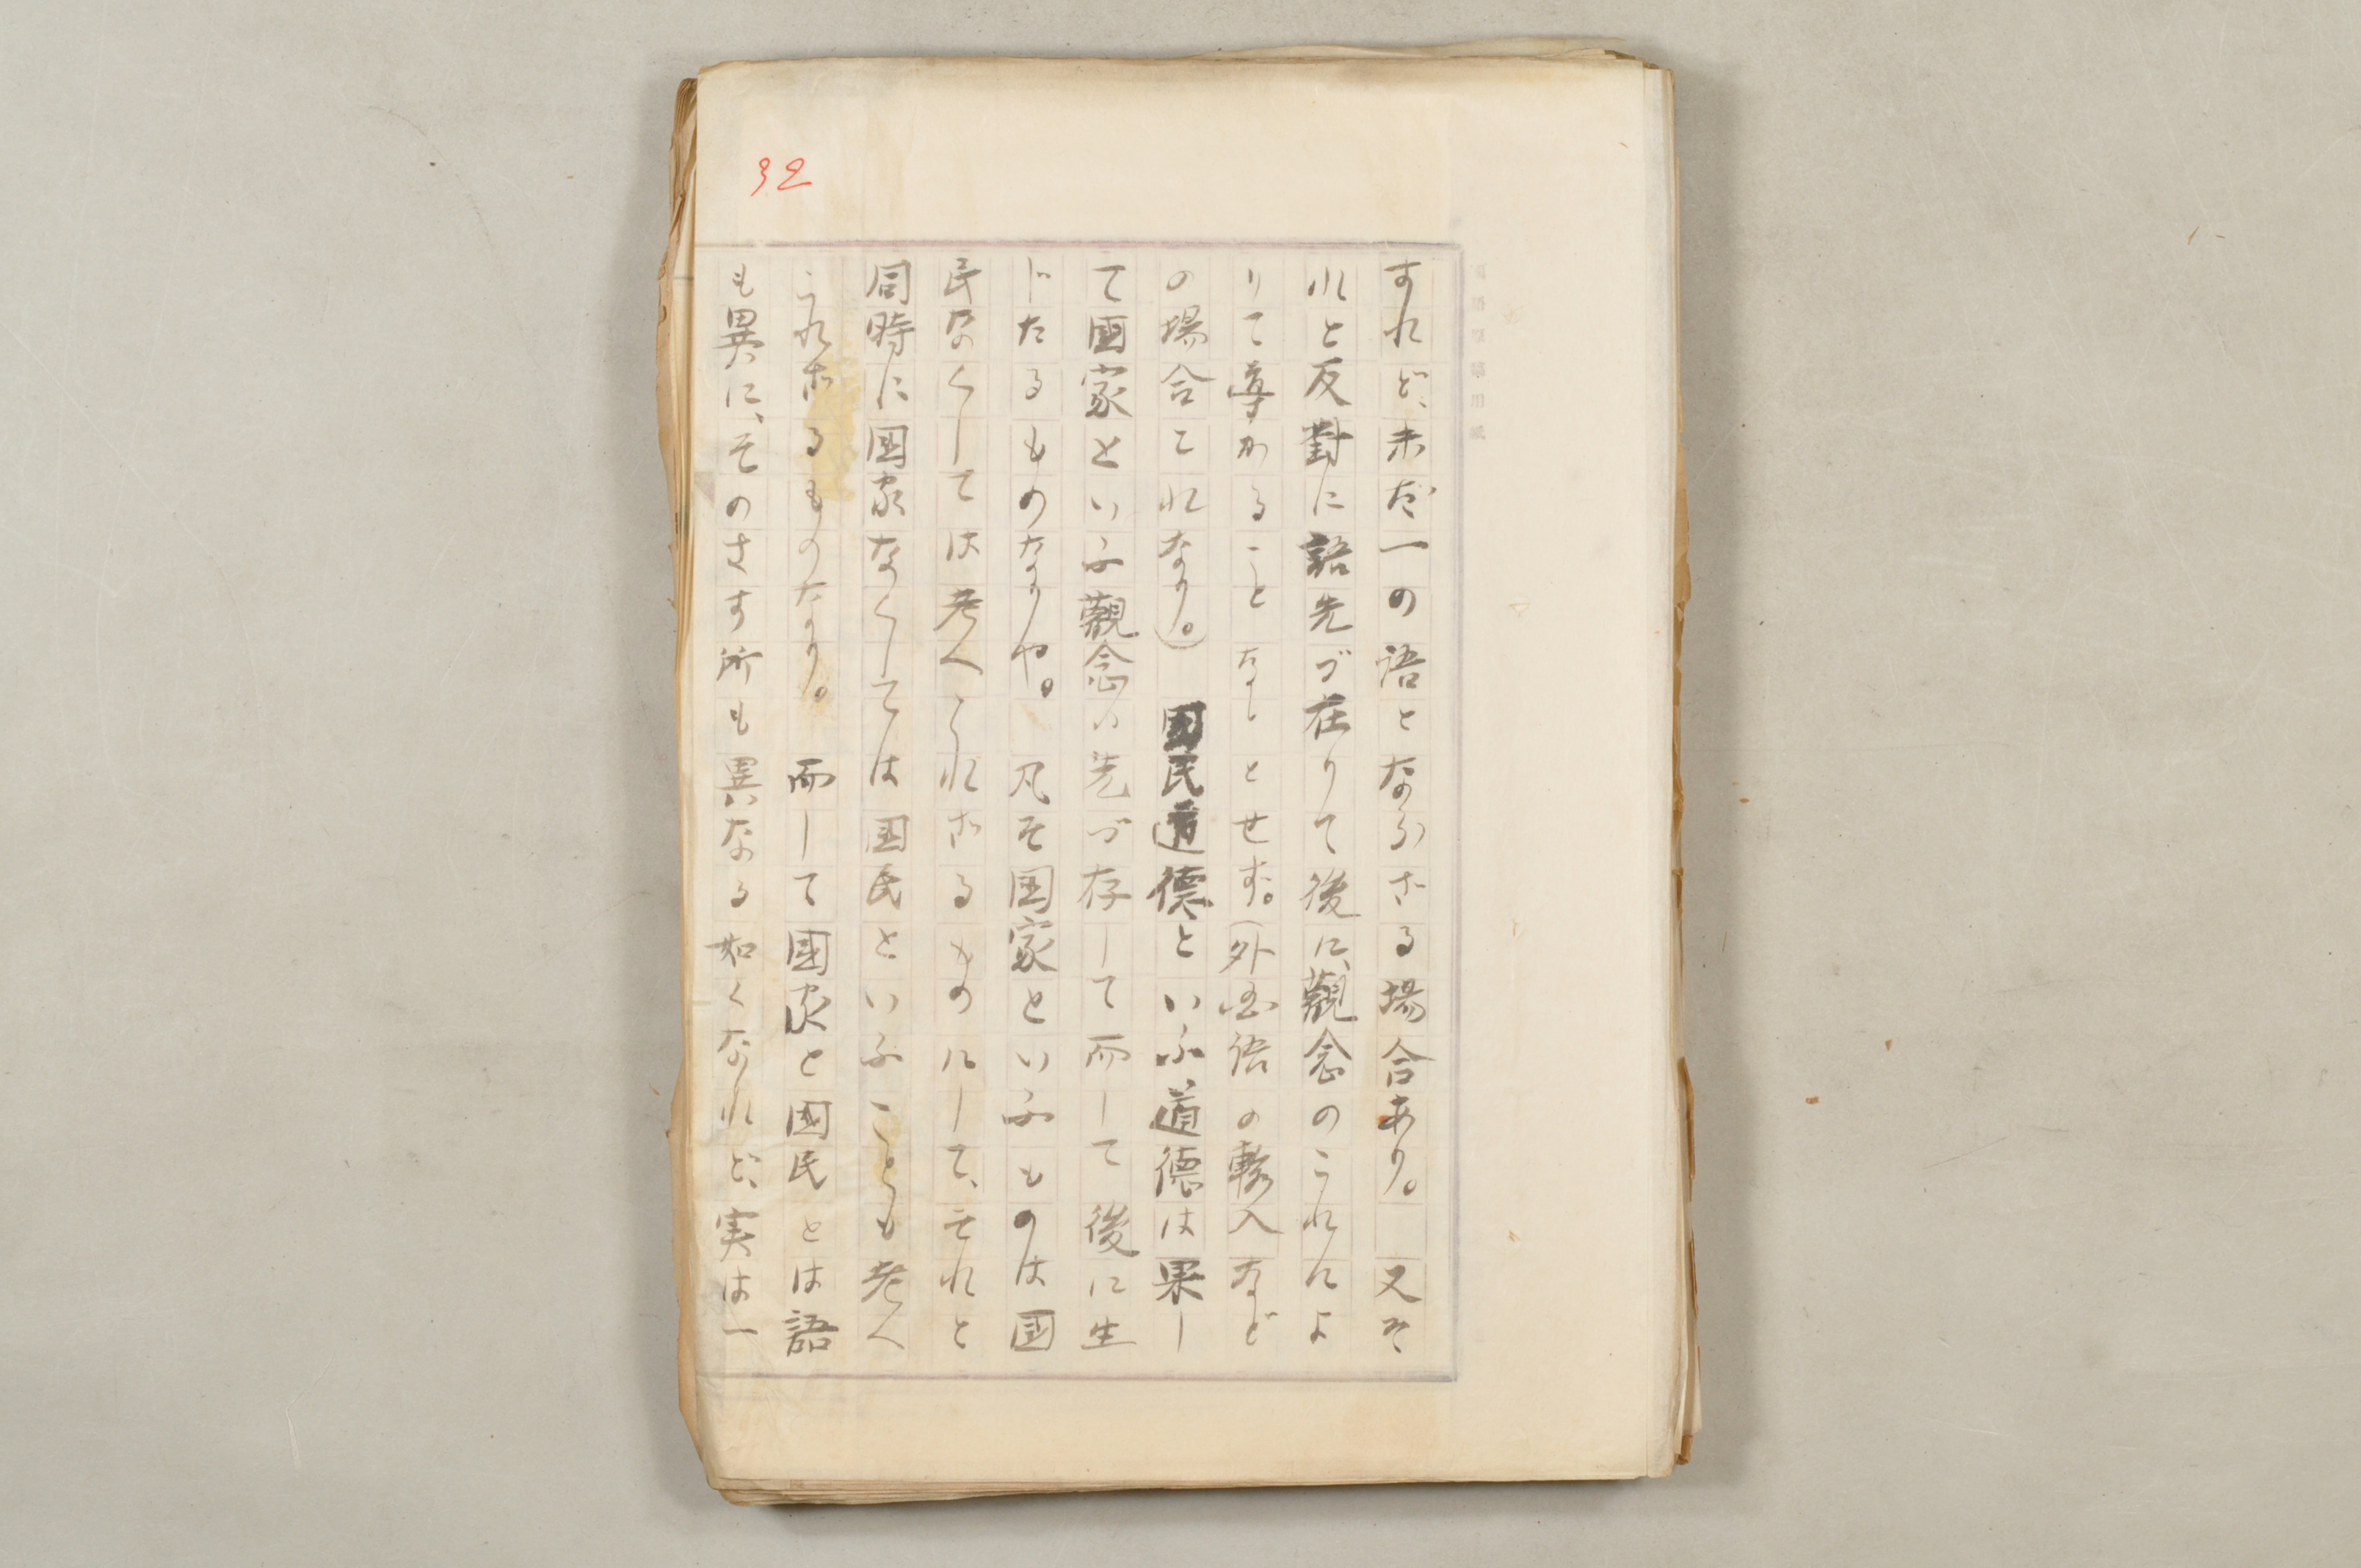 32
すれど、未だ一の語とならざる場合あり。　又そ
れと反對に語先づ在りて後に、觀念のこれによ
りて導かるることなしとせず。（外国語の輸入など
の場合これなり。）　国民道德といふ道德は果し
て國家といふ觀念が先づ存して而して後に生
じたるものなりや。　凡そ国家といふものは国
民なくしては考へられざるものにして、それと
同時に国家なくしては国民といふことも考へ
られざるものなり。　而して國家と國民とは語
も異に、そのさす所も異なる如くなれど、実は一